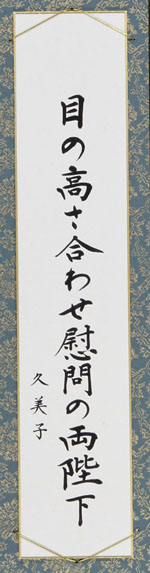 目の高さ合わせ慰問の両陛下
久美子